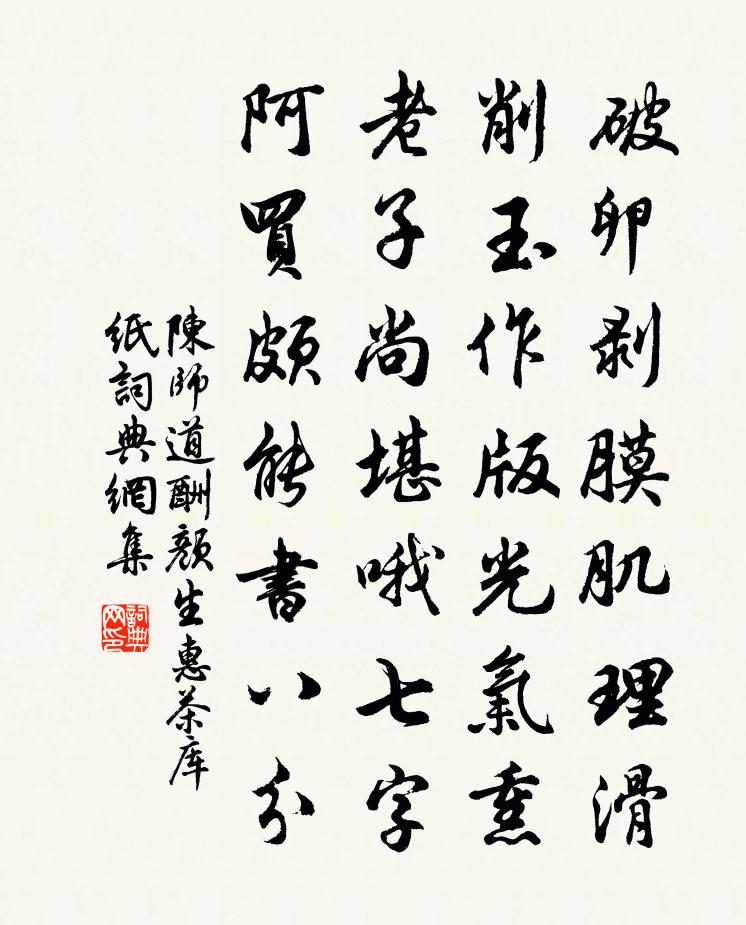 破卵剥膜肌理滑
削玉作版光氣熏
老子尚堪哦七字
阿買頗能書八分
陳師道酬顏生惠茶库
紙詞典網集
詞典网印